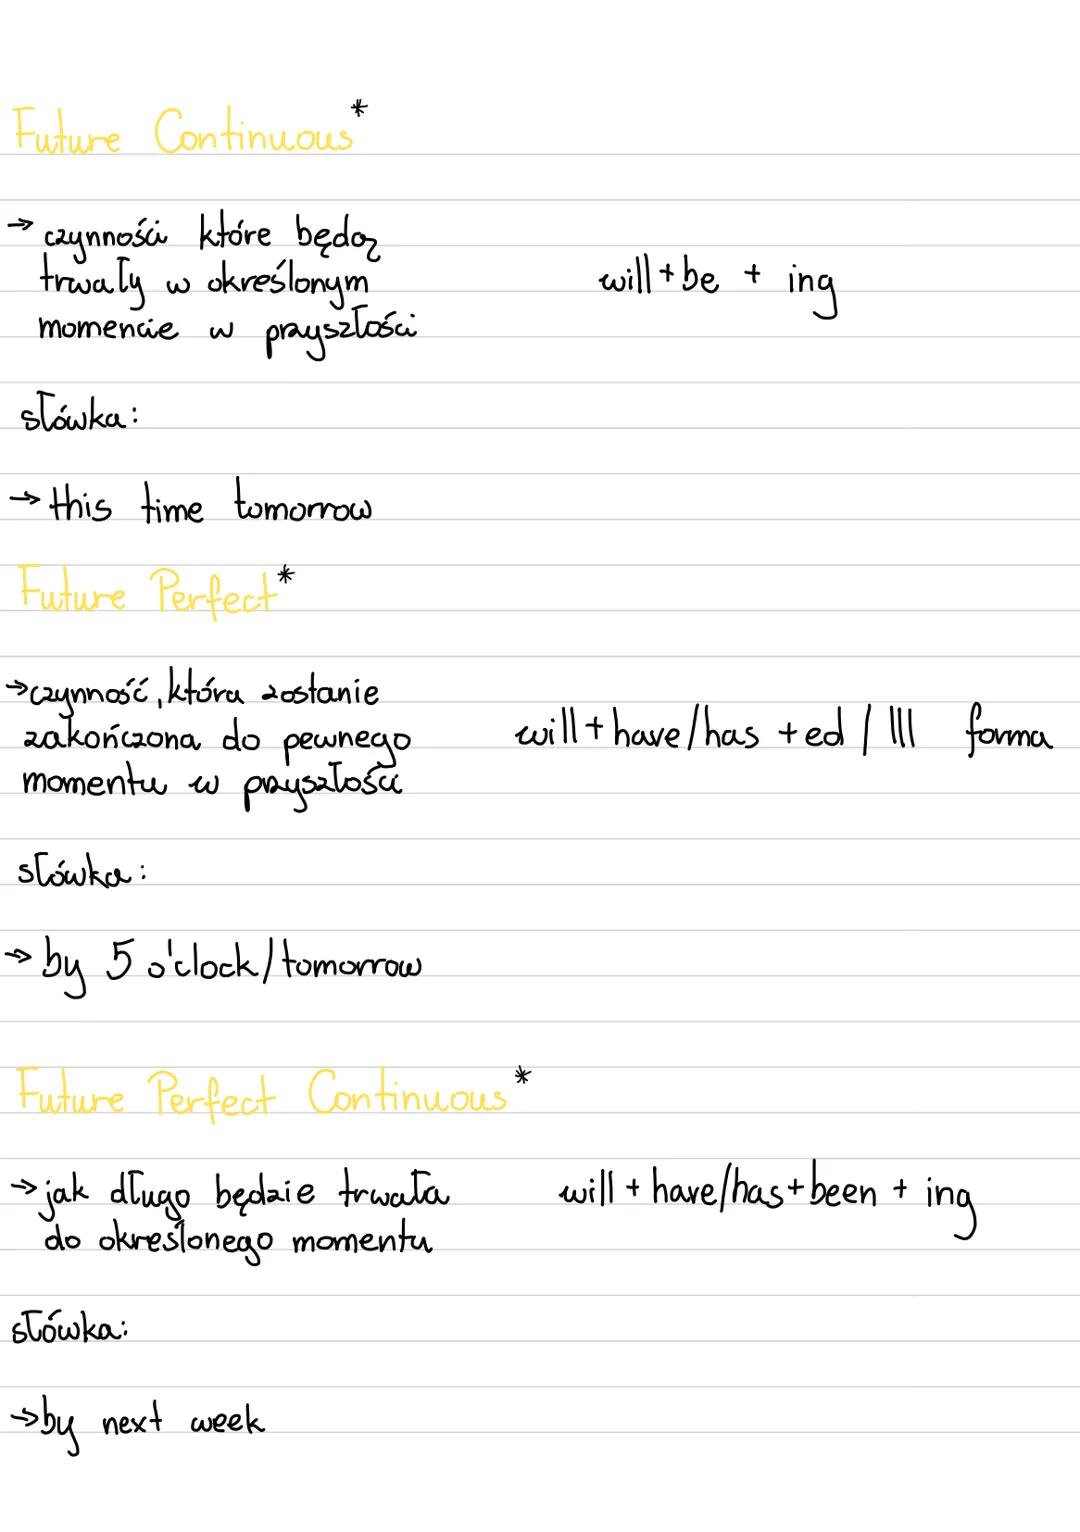 Future Continuous*
→ czynności które będą
trwały w określonym
momencie w przyszłości
will + be + ing
słówka:
→ this time tomorrow
Future Perfect*
→ czynność, która zostanie
zakończona do pewnego
momentu w przyszłości
will + have/has + ed / III forma
słówka:
→ by 5 o'clock/tomorrow
Future Perfect Continuous*
→ jak długo będzie trwała
do określonego momentu
will + have/has + been + ing
słówka:
→ by next week